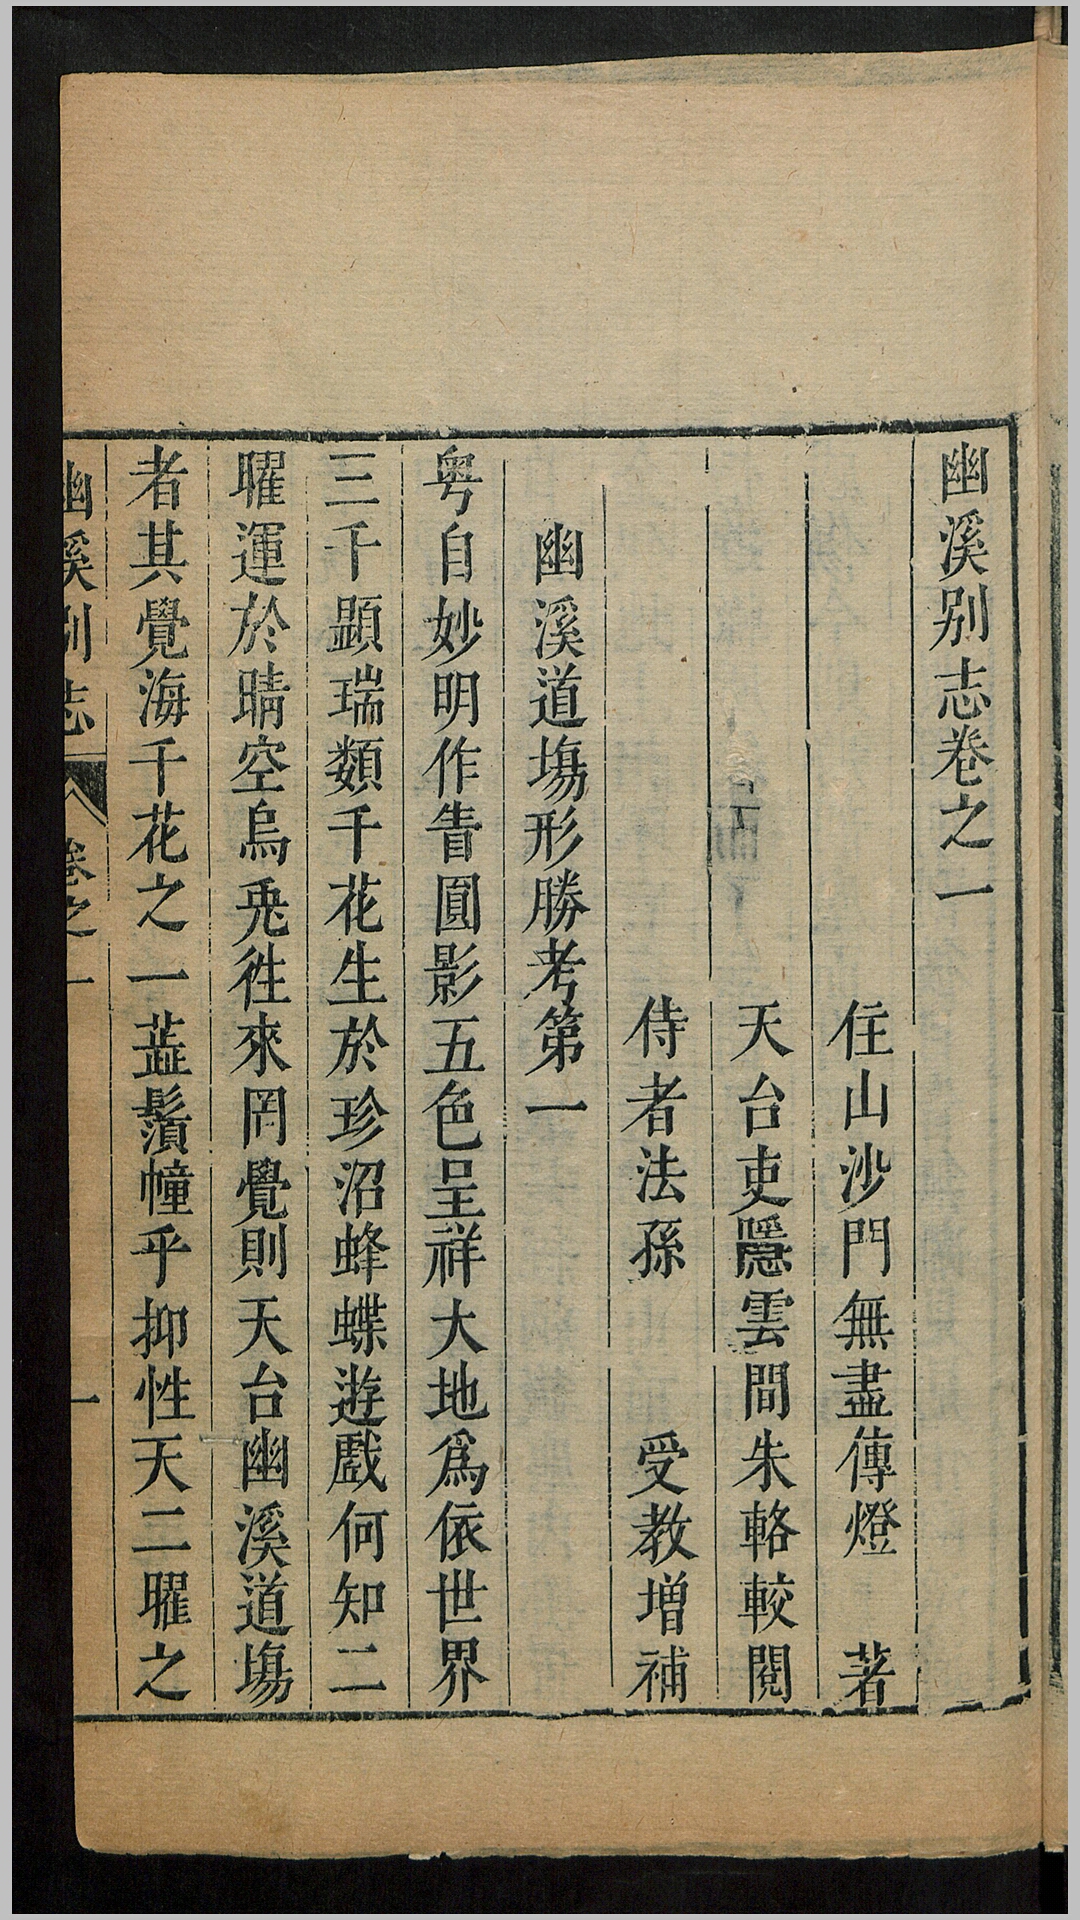 幽溪别志卷之一
住山沙門無盡傳燈 著
天台吏隱雲間朱輅較閱
侍者法孫 受教增補
幽溪道塲形勝考第一
粤自妙明作眚圓影五色呈祥大地爲依世界
三千顯瑞類千花生於珍沼蜂蝶遊戲何知二
曜運於晴空烏兎徃來罔覺則天台幽溪道塲
者其覺海千花之一蕋鬚幢乎抑性天二曜之
幽溪别志 卷之一 一